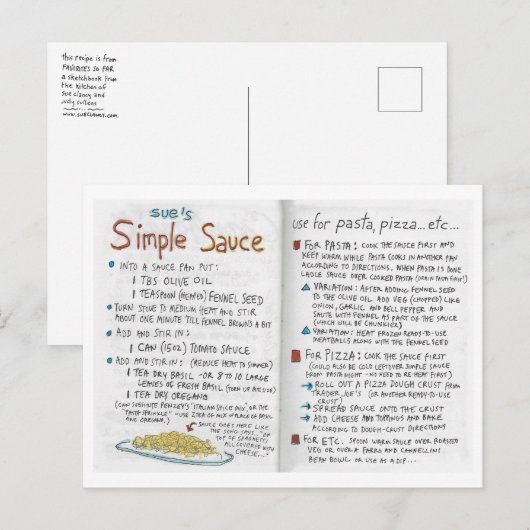 this recipe is from
FAVORITES SO FAR
a sketchbook from
the kitchen of
sue clancy and
judy sullens
www.sueclancy.com
sue's
Simple Sauce
INTO A SAUCE PAN PUT:
1 TBS OLIVE OIL
1 TEASPOON (HEAPED) FENNEL SEED
TURN STOVE TO MEDIUM HEAT AND STIR
ABOUT ONE MINUTE 'TILL FENNEL BROWNS A BIT
ADD AND STIR IN:
1 CAN (15oz) TOMATO SAUCE
ADD AND STIR IN: (REDUCE HEAT TO SIMMER)
1 TEA DRY BASIL -OR 8 TO 10 LARGE
LEAVES OF FRESH BASIL (TORN UP BITE SIZE)
1 TEA DRY OREGANO
(CAN SUBSTITUTE PENZEY'S "ITALIAN SPICE MIX" OR THE
"PASTA SPRINKLE" - USE 2 TEA OF MIX IN PLACE OF BASIL
AND OREGANO.)
SAUCE GOES HERE LIKE
THE SONG SAYS.. "ON
TOP OF SPAGHETTI
ALL COVERED WITH
CHEESE..."
use for pasta, pizza... etc...
FOR PASTA: COOK THE SAUCE FIRST AND
KEEP WARM WHILE PASTA COOKS IN ANOTHER PAN
ACCORDING TO DIRECTIONS. WHEN PASTA IS DONE
LADLE SAUCE OVER COOKED PASTA (DRAIN PASTA FIRST)
VARIATION: AFTER ADDING FENNEL SEED
TO THE OLIVE OIL ADD VEG (CHOPPED) LIKE
ONION, GARLIC AND BELL PEPPER AND
SAUTE WITH FENNEL AS PART OF THE SAUCE
(WHICH WILL BE CHUNKIER)
VARIATION: HEAT FROZEN READY-TO-USE
MEATBALLS ALONG WITH THE FENNEL SEED
FOR PIZZA: COOK THE SAUCE FIRST
(COULD ALSO BE COLD LEFTOVER SIMPLE SAUCE
FROM PASTA NIGHT - NO NEED TO RE HEAT FIRST)
ROLL OUT A PIZZA DOUGH CRUST FROM
TRADER JOE'S (OR ANOTHER READY-TO-USE
CRUST)
SPREAD SAUCE ONTO THE CRUST
ADD CHEESE AND TOPPINGS AND BAKE
ACCORDING TO DOUGH-CRUST DIRECTIONS
FOR ETC. SPOON WARM SAUCE OVER ROASTED
VEG OR OVER A FARRO AND CANNELLINI
BEAN BOWL OR USE AS A DIP...